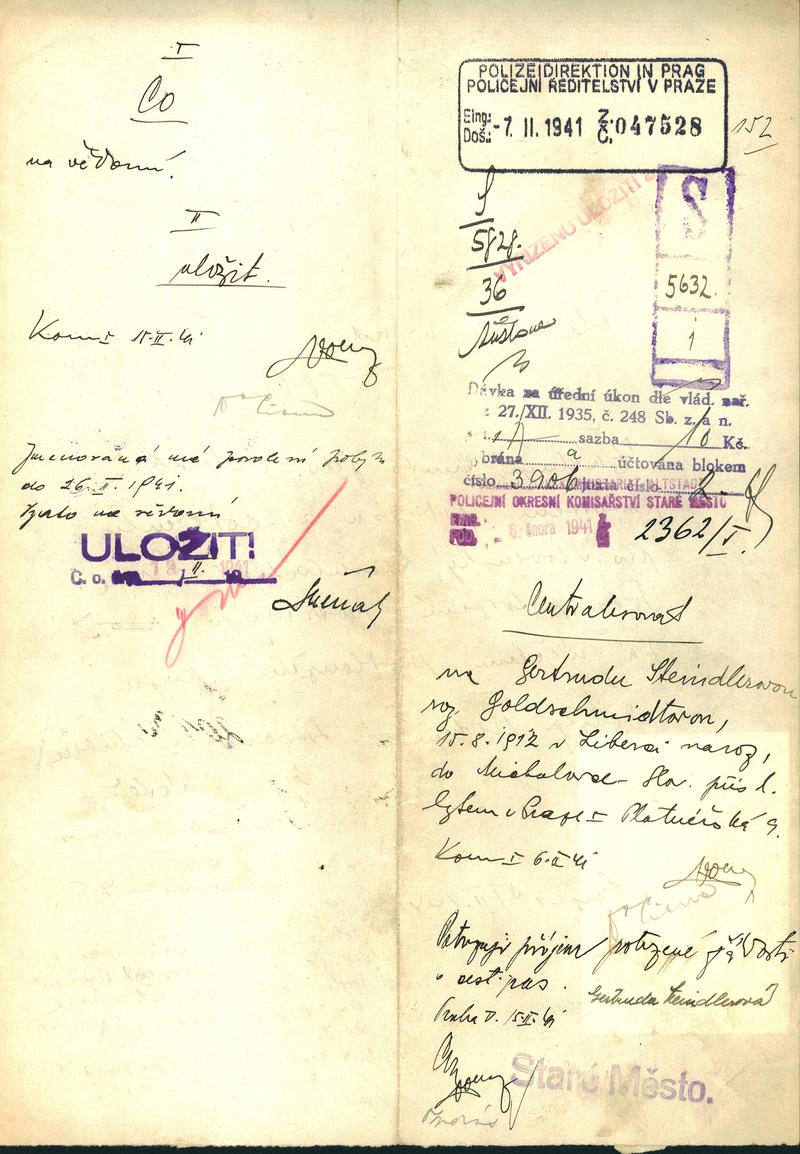 I
Co
na vědomí.
II
uložit.
Kom I 15.II.41
Jmenovaná má povolení pobytu
do 26.II.1941.
Vzato na vědomí
ULOŽIT!
C. o. II. 19
POLIZEIDIREKTION IN PRAG
POLICEJNÍ ŘEDITELSTVÍ V PRAZE
Eing:
Doš.: -7. II. 1941 Z. Č. 047528
152
VYŘÍZENO ULOŽIT!
S
S
5828.
5632.
36
1
Dávka za úřední úkon dle vlád. nař.
z 27./XII. 1935, č. 248 Sb. z. a n.
sazba 10 Kč.
vybrána a účtována blokem
číslo 3906 juxta číslo 2.
ALTSTADT
POLICEJNÍ OKRESNÍ KOMISAŘSTVÍ STARÉ MĚSTO
6. února 1941
2362/I.
Centralisovat
na Gertrudu Steindlerovou
roz. Goldschmidtovou,
15.8.1912 v Liberci naroz,
do Michalovce - Slov. přísl.
bytem v Praze I Platnéřská 9.
Kom I 6.II 41
Potvrzuji příjem potvrzené žádosti
o cest. pas.
Gertruda Steindlerová
Praha I. 15.II.41
Staré Město.